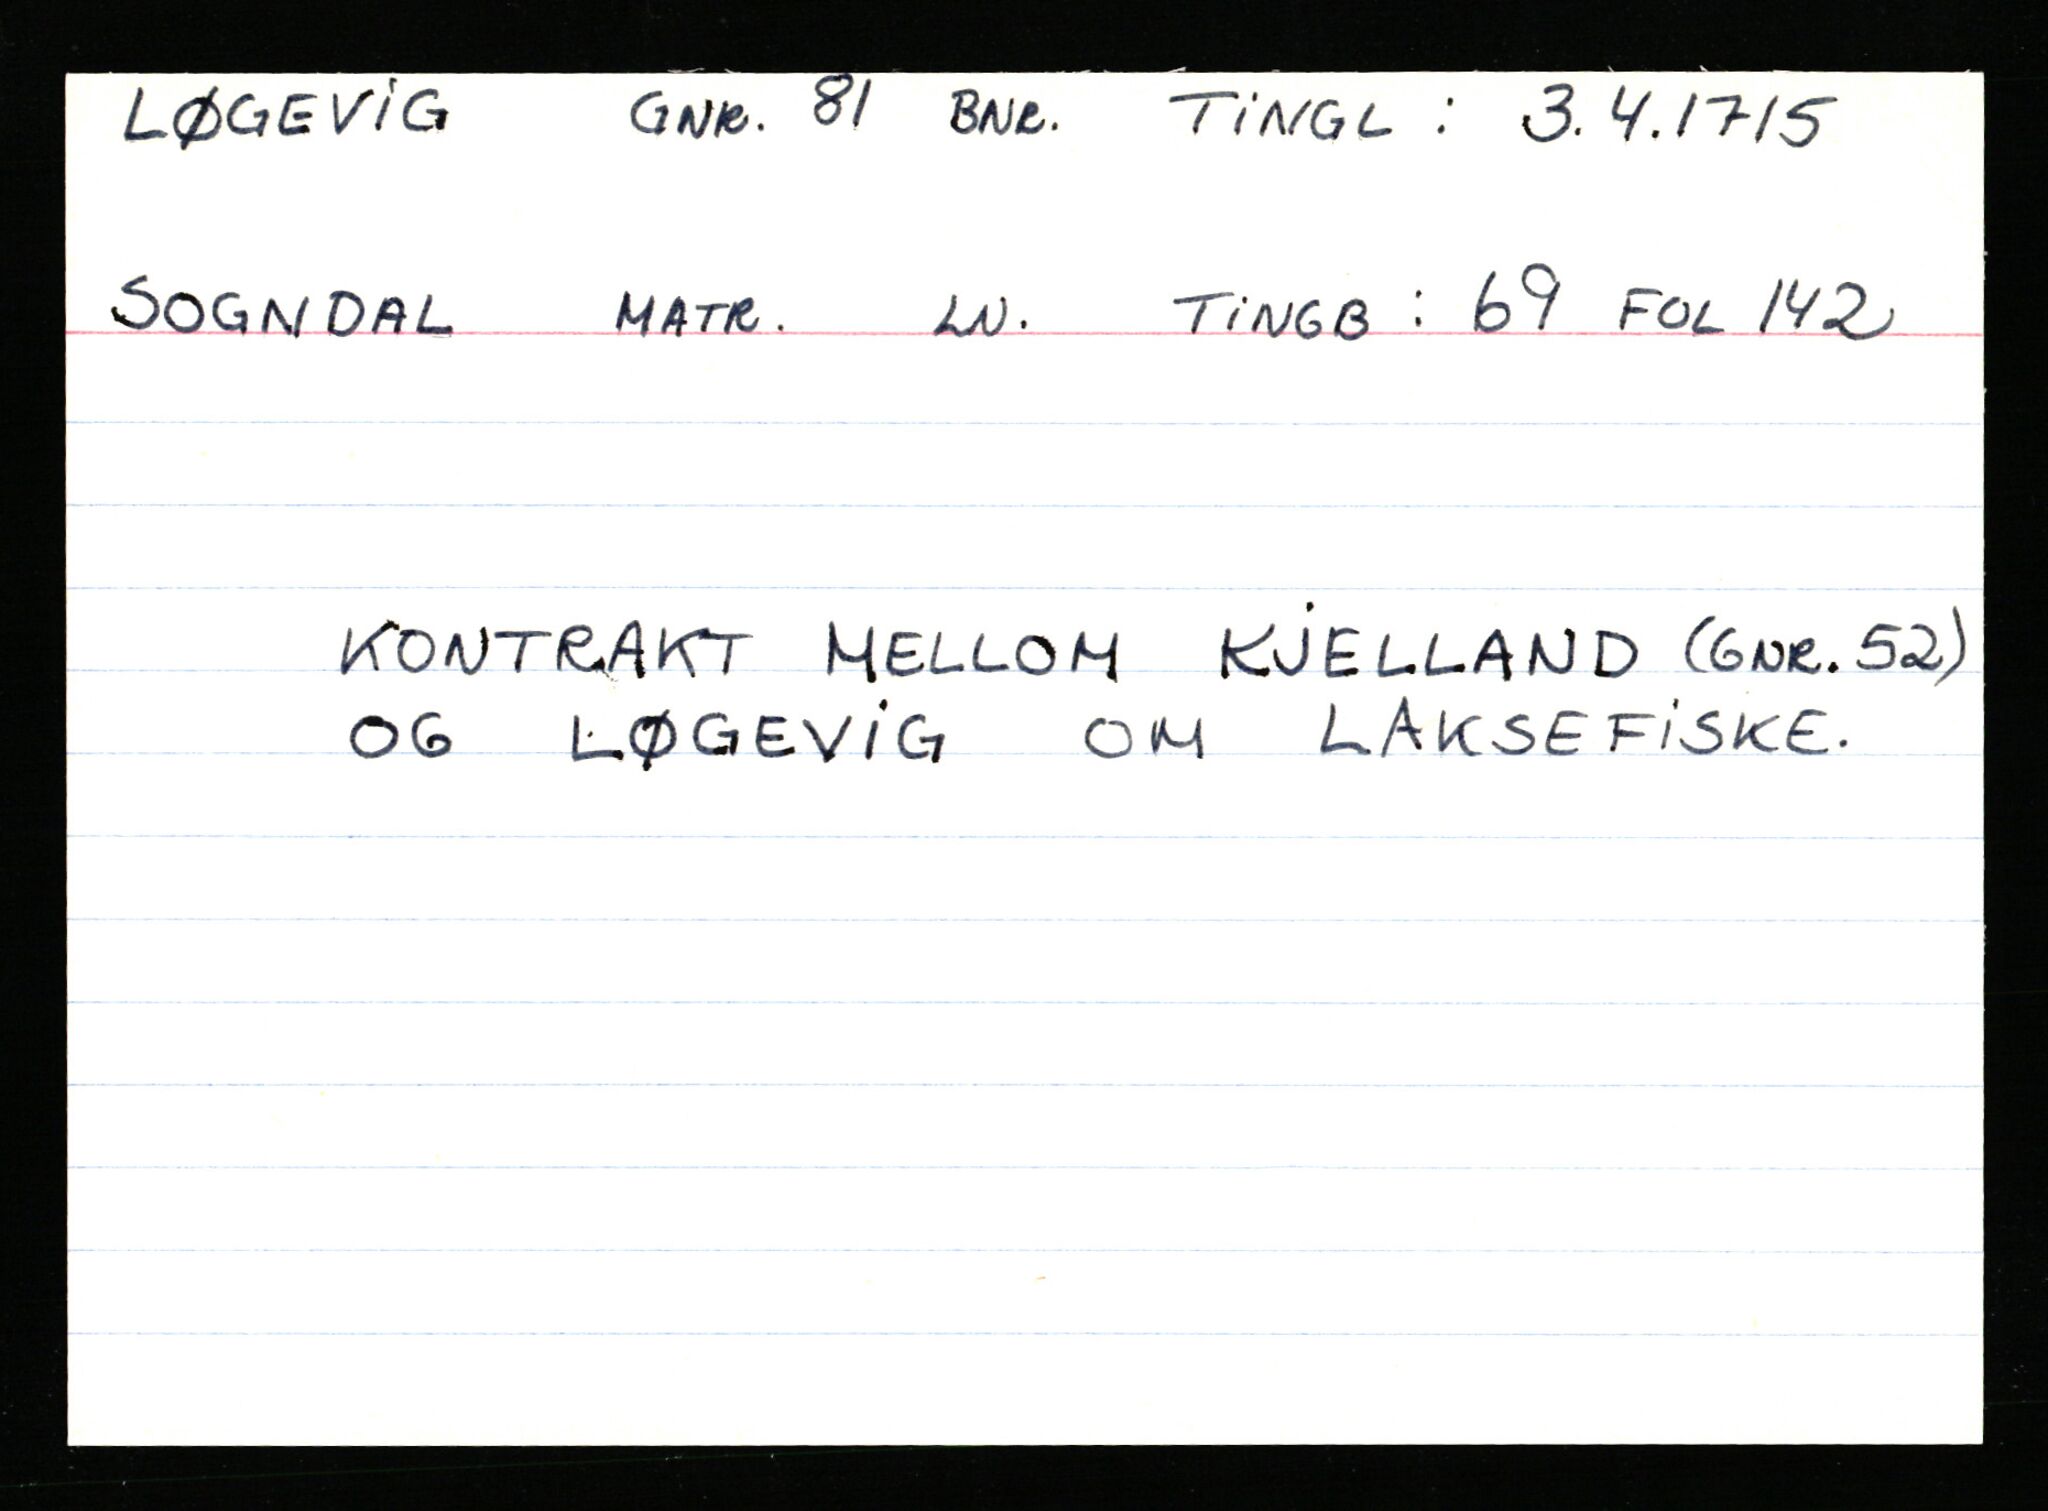 LØGEVIG GNR. 81 BNR. TINGL : 3.4.1715
SOGNDAL MATR. LN. TINGB : 69 FOL 142
KONTRAKT MELLOM KJELLAND (GNR. 52)
OG LØGEVIG OM LAKSEFISKE.